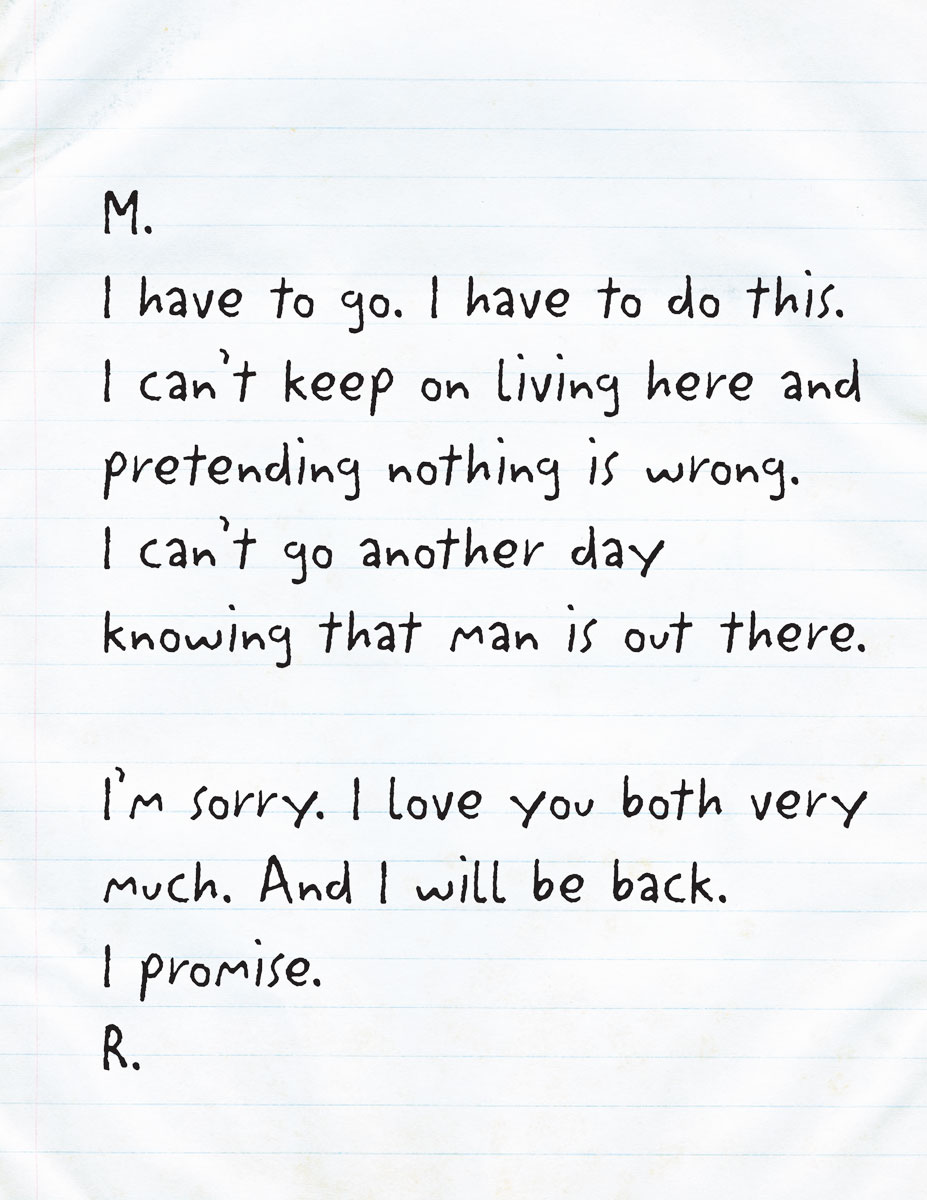 M.
I have to go. I have to do this.
I can't keep on living here and
pretending nothing is wrong.
I can't go another day
knowing that man is out there.
I'm sorry. I love you both very
much. And I will be back.
I promise.
R.